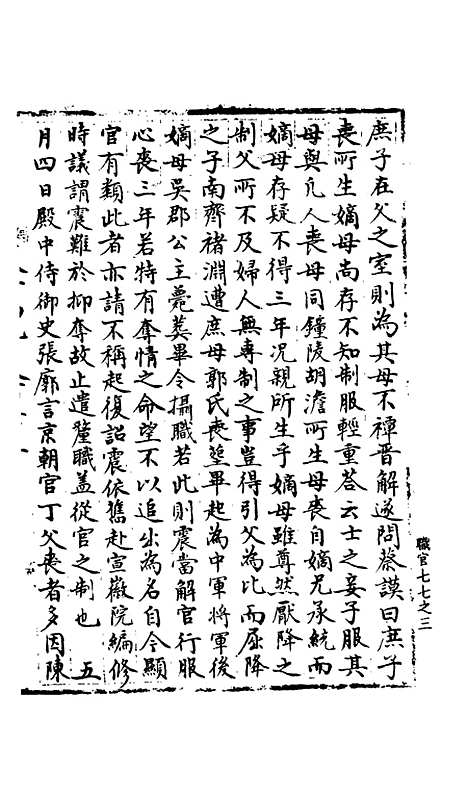 庶子在父之室則為其母不禫晉解遂問蔡謨曰庶子
喪所生嫡母尚存不知制服輕重荅云士之妾子服其
母與凡人喪母同鐘陵胡澹所生母喪自嫡兄承統而
嫡母存疑不得三年況親所生乎嫡母雖尊然厭降之
制父所不及婦人無專制之事豈得引父為比而屈降
之子南齊褚淵遭庶母郭氏喪塟畢起為中軍將軍後
嫡母吳郡公主薨葬畢令攝職若此則震當解官行服
心喪三年若特有奪情之命望不以追出為名自今顯
官有類此者亦請不稱起復詔震依舊赴宣徽院編修
時議謂震難於抑奪故止遣釐職蓋從官之制也　五
月四日殿中侍御史張廓言京朝官丁父喪者多因陳
職官七七之三